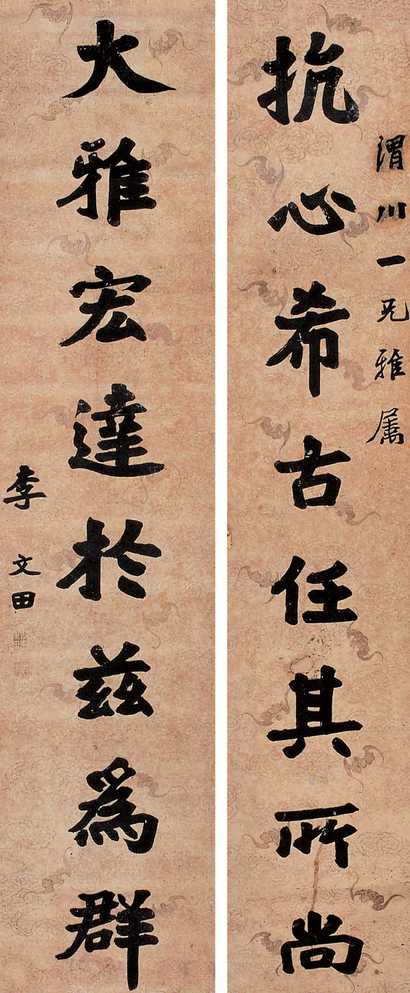 渭川一兄雅属
抗心希古任其所尚
大雅宏達於茲為群
李文田